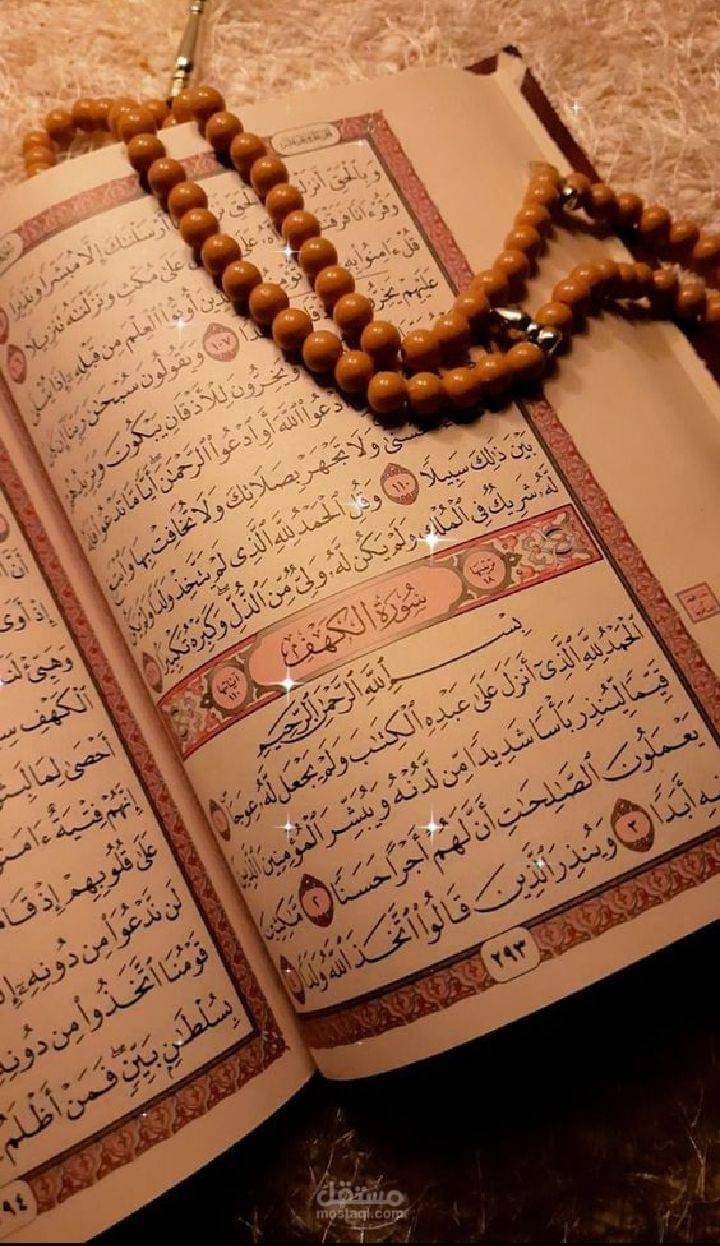 وَبِٱلْحَقِّ أَنزَلْنَٰهُ
أَرْسَلْنَٰكَ إِلَّا مُبَشِّرًا وَنَذِيرًا
وَقُرْءَانًا فَرَقْنَٰهُ عَلَىٰ مُكْثٍ وَنَزَّلْنَٰهُ تَنزِيلًا
قُلْ ءَامِنُوا۟ بِهِۦٓ أُوتُوا۟ ٱلْعِلْمَ مِن قَبْلِهِۦٓ إِذَا يُتْلَىٰ
عَلَيْهِمْ يَخِرُّونَ ١٠٧ وَيَقُولُونَ سُبْحَٰنَ رَبِّنَآ إِن كَانَ
وَيَخِرُّونَ لِلْأَذْقَانِ يَبْكُونَ وَيَزِيدُهُمْ
ٱدْعُوا۟ ٱللَّهَ أَوِ ٱدْعُوا۟ ٱلرَّحْمَٰنَ أَيًّا مَّا تَدْعُوا۟ فَلَهُ
وَلَا تَجْهَرْ بِصَلَاتِكَ وَلَا تُخَافِتْ بِهَا وَٱبْتَغِ
بَيْنَ ذَٰلِكَ سَبِيلًا ١١٠ وَقُلِ ٱلْحَمْدُ لِلَّهِ ٱلَّذِى لَمْ يَتَّخِذْ وَلَدًا وَلَمْ يَكُن
لَّهُۥ شَرِيكٌ فِى ٱلْمُلْكِ وَلَمْ يَكُن لَّهُۥ وَلِىٌّ مِّنَ ٱلذُّلِّ وَكَبِّرْهُ تَكْبِيرًۢا
سُورَةُ الكَهْفِ
بِسْمِ ٱللَّهِ ٱلرَّحْمَٰنِ ٱلرَّحِيمِ
ٱلْحَمْدُ لِلَّهِ ٱلَّذِىٓ أَنزَلَ عَلَىٰ عَبْدِهِ ٱلْكِتَٰبَ وَلَمْ يَجْعَل لَّهُۥ عِوَجَا
قَيِّمًا لِّيُنذِرَ بَأْسًا شَدِيدًا مِّن لَّدُنْهُ وَيُبَشِّرَ ٱلْمُؤْمِنِينَ ٱلَّذِينَ
يَعْمَلُونَ ٱلصَّٰلِحَٰتِ أَنَّ لَهُمْ أَجْرًا حَسَنًا ٢ مَّٰكِثِينَ
فِيهِ أَبَدًا ٣ وَيُنذِرَ ٱلَّذِينَ قَالُوا۟ ٱتَّخَذَ ٱللَّهُ وَلَدًا
٢٩٣
إِذْ أَوَى
وَهَيِّئْ
ٱلْكَهْفِ
أَحْصَىٰ لِمَا
إِنَّهُمْ فِتْيَةٌ
عَلَىٰ قُلُوبِهِمْ إِذْ
لَن نَّدْعُوَا۟ مِن دُونِهِۦٓ
قَوْمُنَا ٱتَّخَذُوا۟ مِن دُونِهِۦٓ
بِسُلْطَٰنٍۭ بَيِّنٍ فَمَنْ أَظْلَمُ
مستقل
mostaql.com